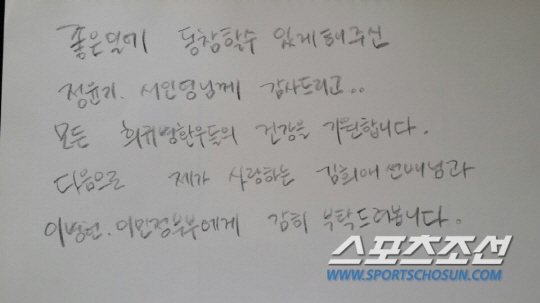 좋은일에 동참할수 있게해주신
정윤기. 서인영님께 감사드리고..
모든 희귀병환우들의 건강을 기원합니다.
다음으로 제가 사랑하는 김희애선배님과
이병헌.이민정부부에게 감히 부탁드려봅니다.
스포츠조선
WWW.SPORTSCHOSUN.COM